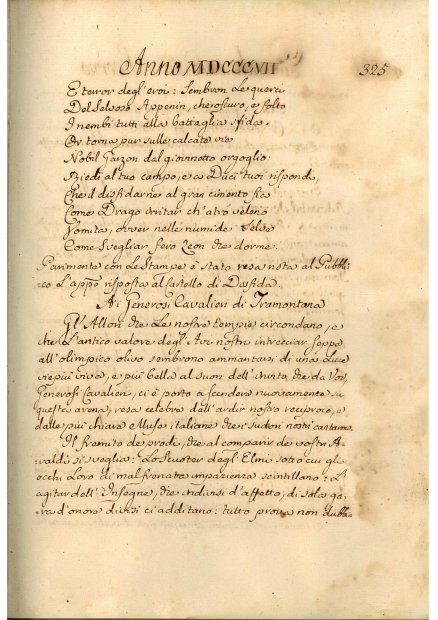 Anno MDCCCVII 325
E terror degl'eroi: Sembran Le querci
Del Selvoso Appenin, che oscuro, e folto
I nembi tutti alla battaglia sfida.
Or torna pur sulle calcate vie
Nobil Garzon dal gioinetto orgoglio
Riedi al tuo campo, e a Duci tuoi rispondi,
Che il disfidarne al gran cimento fia
Come Drago irritar ch'atro veleno
Vomita, over nelle numide Selve
Come Svegliar fero Leon che dorme.
Parimente con Le Stampe è stata resa nota al Pubbli-
co L'appo risposta al Cartello di Disfida.
Ai Generosi Cavalieri di Tramontana
Gl'Allori che Le nostre tempie circondano, e
che l'antico valore degl'Avi nostri intrecciar seppe
all'olimpico olivo sembrono ammantarsi di una Luce
vie più viva, e più bella al suon dell'invito, che da Voi,
Generosi Cavalieri, ci è porto a scendere nuovamente in
questa arena, resa celebre dall'ardir nostro reciproco, e
dalle più chiare Muse italiane che i sudori nostri cantarono
Il fremito de prodi, che al comparir de vostri A-
raldi si sveglia: Lo Scuoter degl'Elmi sotto cui gli
occhi Loro di mal frenata impazienza scintillano: L'
agitar dell'Insegne, che indivisi d'affetto, di sola ga-
ra d'onore divisi ci additano: tutto prova non dubbia